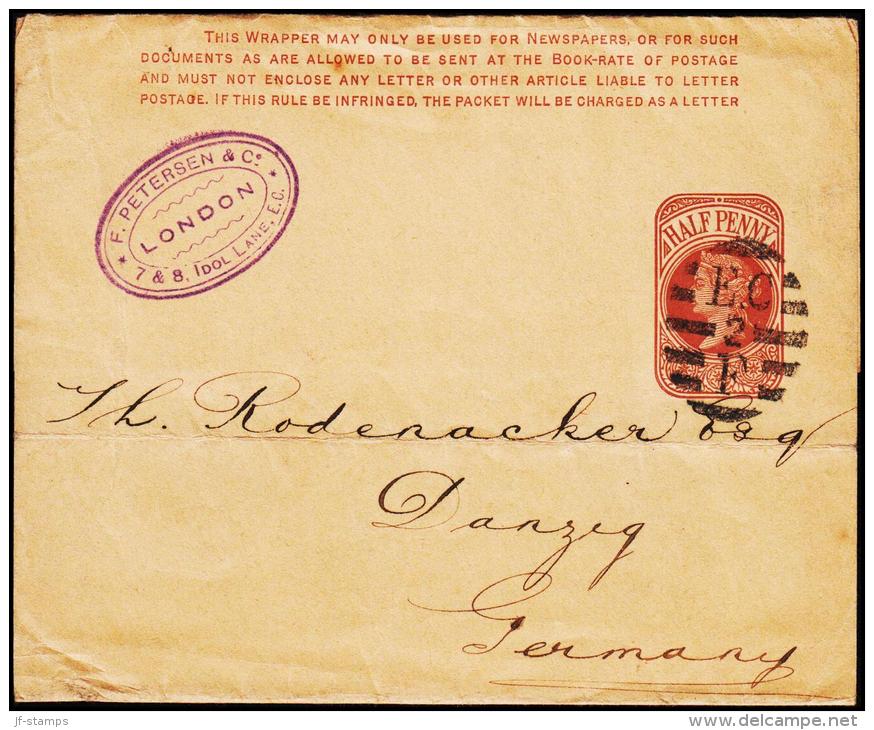 THIS WRAPPER MAY ONLY BE USED FOR NEWSPAPERS, OR FOR SUCH
DOCUMENTS AS ARE ALLOWED TO BE SENT AT THE BOOK-RATE OF POSTAGE
AND MUST NOT ENCLOSE ANY LETTER OR OTHER ARTICLE LIABLE TO LETTER
POSTAGE. IF THIS RULE BE INFRINGED, THE PACKET WILL BE CHARGED AS A LETTER
F. PETERSEN & Co
LONDON
7 & 8, IDOL LANE, E.C.
HALF PENNY
E.C
2
Th. Rodenacker Esq
Danzig
Germany
jf-stamps
www.delcampe.net